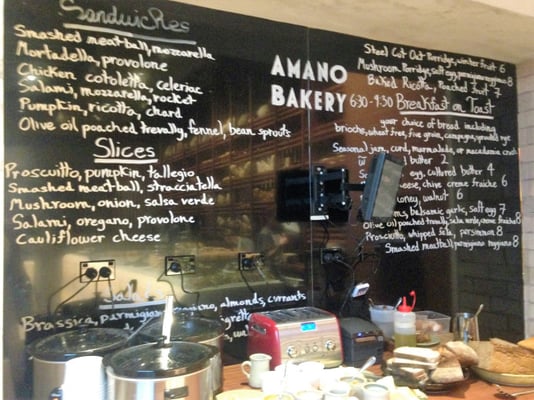 Sandwiches
Smashed meatball, mozzarella
Mortadella, provolone
Chicken cotoletta, celeriac
Salami, mozzarella, rocket
Pumpkin, ricotta, chard
Olive oil poached trevally, fennel, bean sprouts
Slices
Proscuitto, pumpkin, tallegio
Smashed meatball, stracciatella
Mushroom, onion, salsa verde
Salami, oregano, provolone
Cauliflower cheese
Salads
Brassica, parmigiano almonds, currants
AMANO
BAKERY
6:30 - 9:30
Steel Cut Oat Porridge, winter fruit 6
Mushroom Porridge, salt egg, parmigiano reggiano 8
Baked Ricotta, Poached Fruit 7
Breakfast on Toast
your choice of bread including
brioche, wheat free, five grain, campagna, sprouted rye
Seasonal jam, curd, marmalade, or macadamia crush
butter 2
egg, cultured butter 4
cheese, chive creme fraiche 6
honey, walnut 6
balsamic garlic, salt egg 7
Olive oil poached trevally, salsa verde, creme fraiche 8
Prosciutto, whipped feta, persimmon 8
Smashed meatball, parmigiano reggiano 8